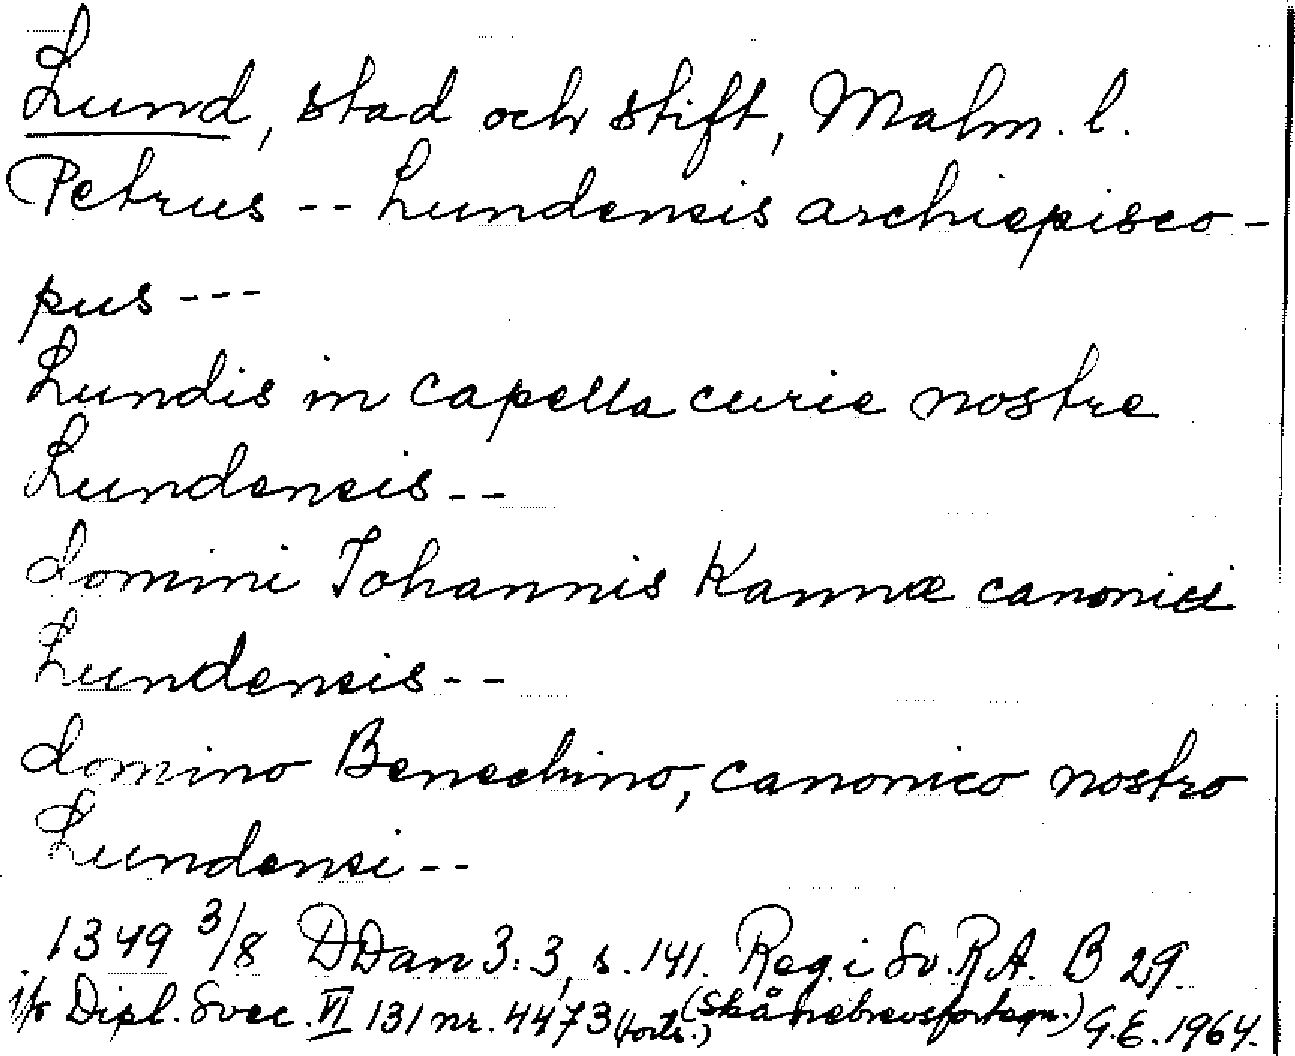 Lund, stad och stift, Malm. l.
Petrus -- Lundensis archiepisco-
pus ---
Lundis in capella curie nostre
Lundensis --
domini Johannis Kannæ canonici
Lundensis --
domino Benechino, canonico nostro
Lundensi --
1349 3/8 DDan 3:3, s. 141. Reg. i Sv. R.A. B 29
jfr Dipl. Svec. VI 131 nr. 4473 (forts.) (Skånebrevsförtegn.) G.E. 1964.